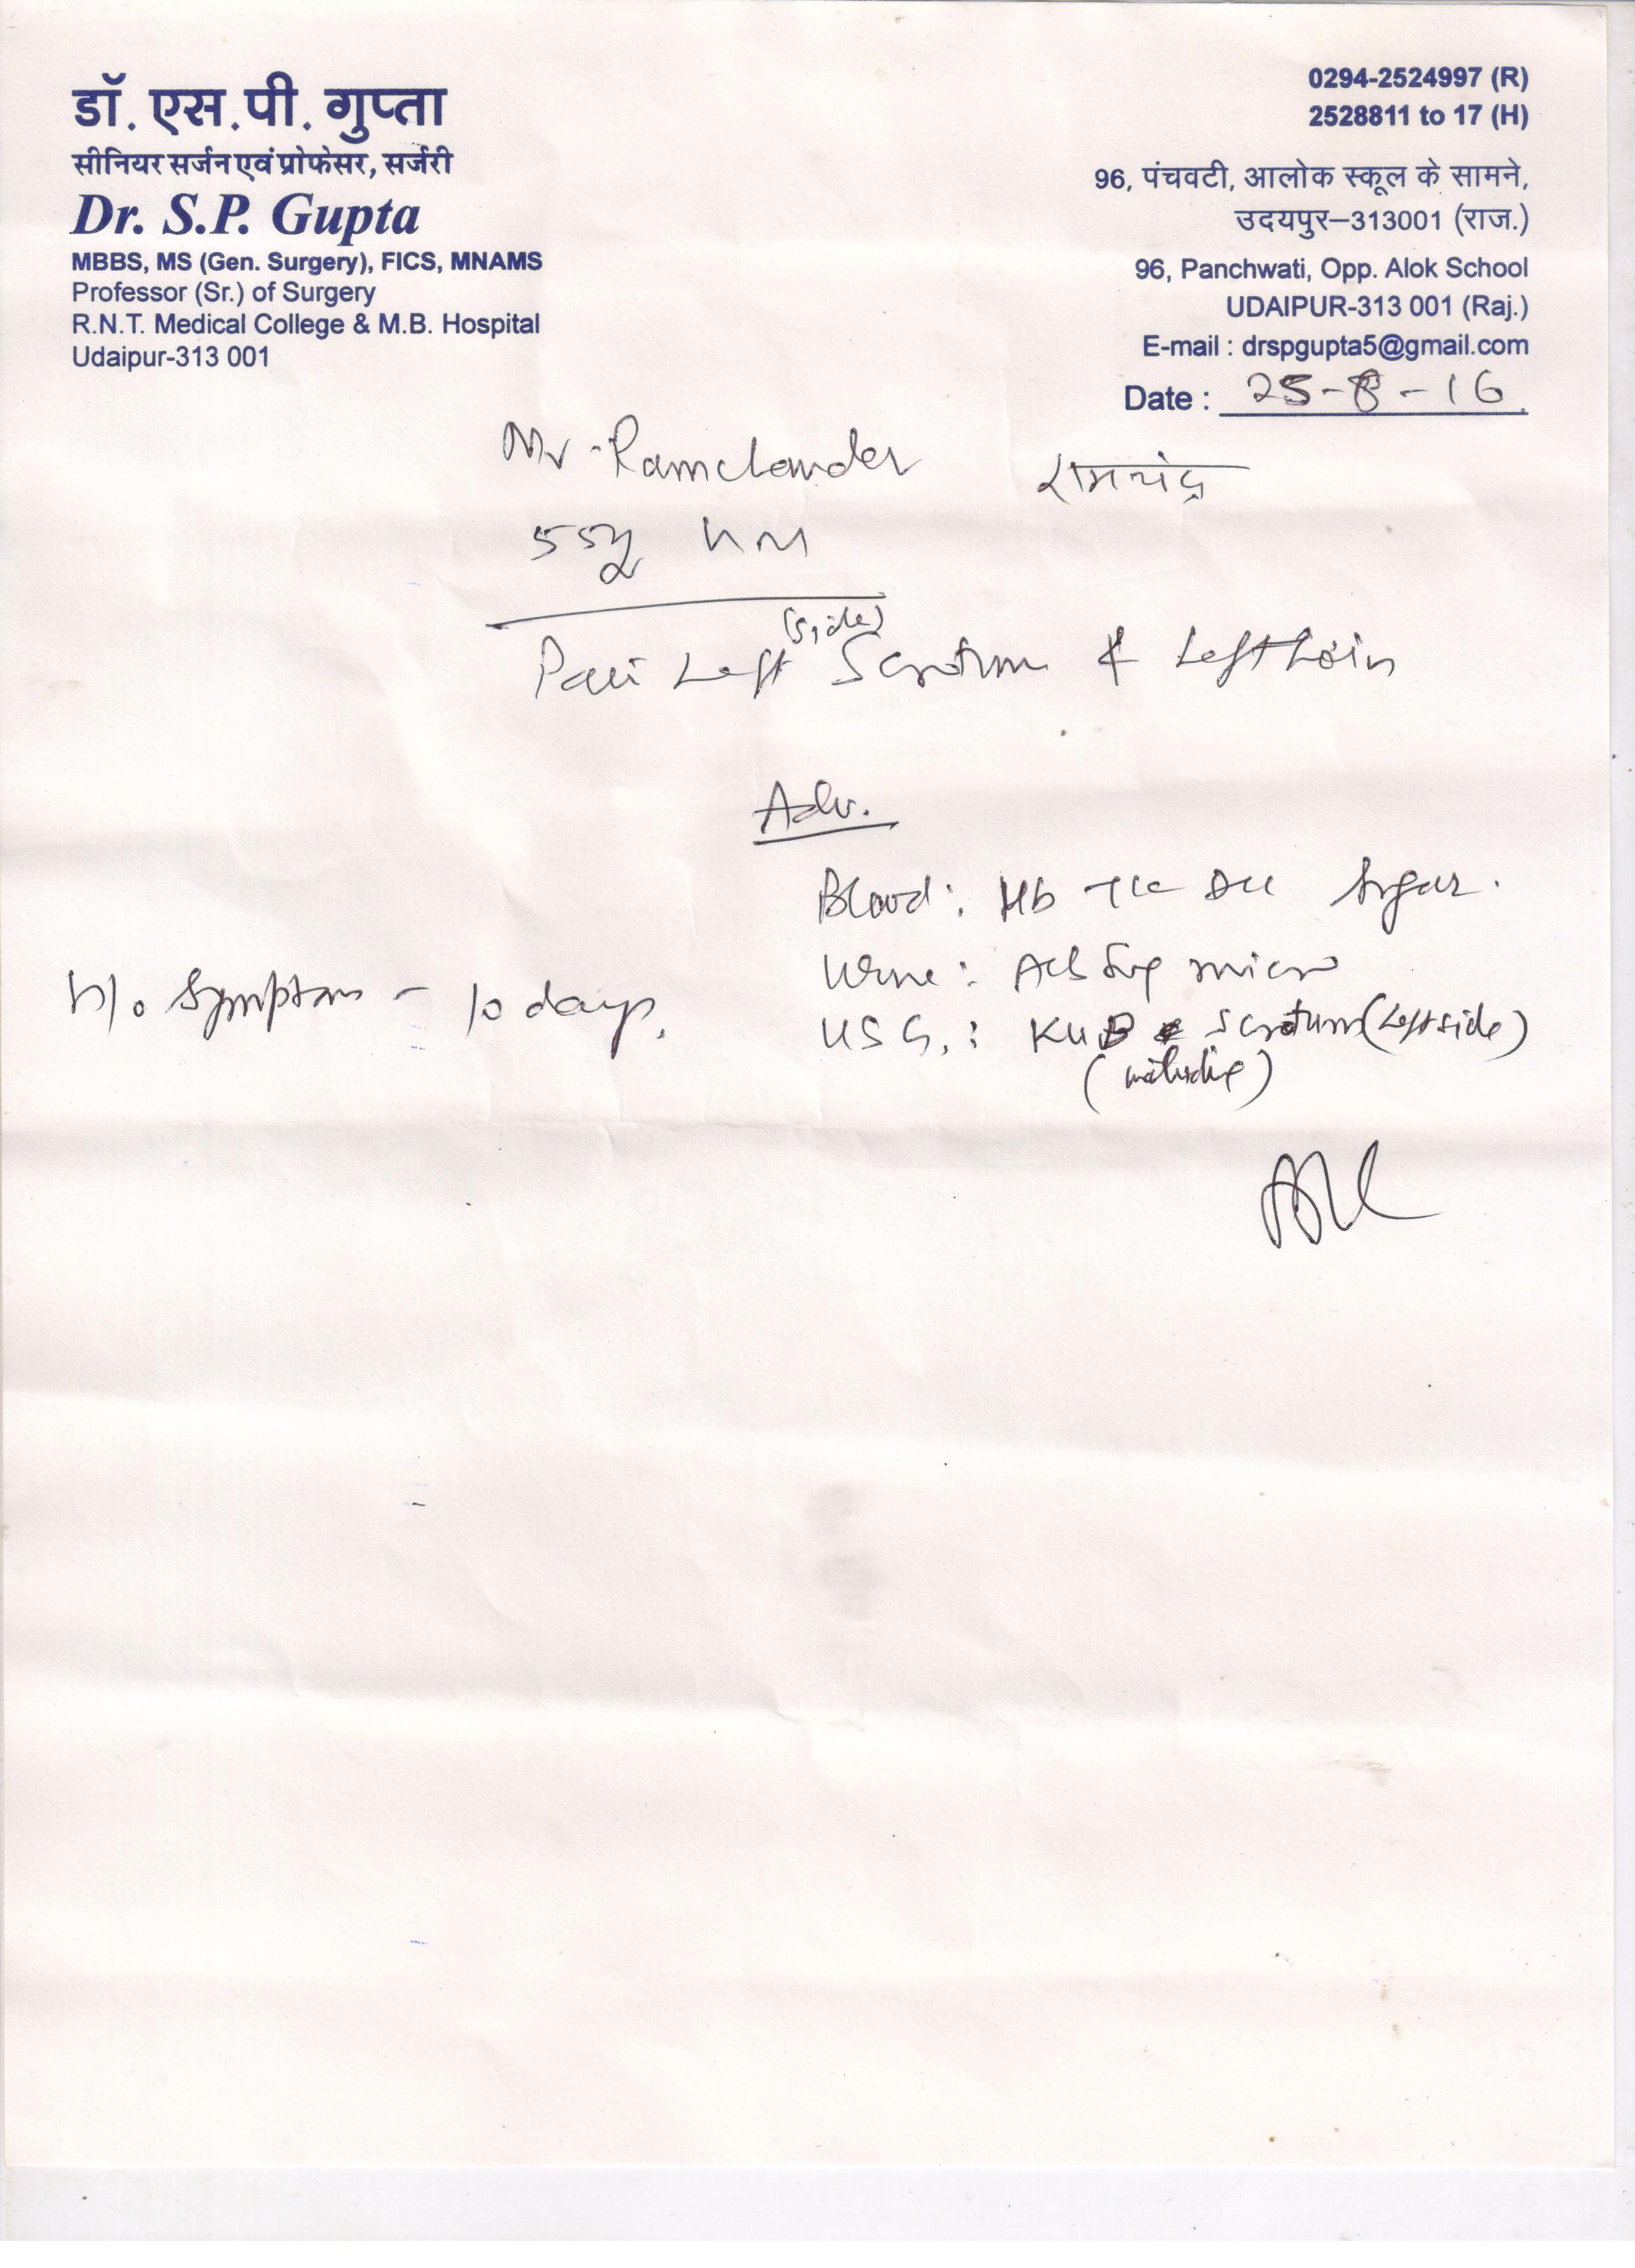 डॉ. एस.पी. गुप्ता
सीनियर सर्जन एवं प्रोफेसर, सर्जरी
Dr. S.P. Gupta
MBBS, MS (Gen. Surgery), FICS, MNAMS
Professor (Sr.) of Surgery
R.N.T. Medical College & M.B. Hospital
Udaipur-313 001
0294-2524997 (R)
2528811 to 17 (H)
96, पंचवटी, आलोक स्कूल के सामने,
उदयपुर–313001 (राज.)
96, Panchwati, Opp. Alok School
UDAIPUR-313 001 (Raj.)
E-mail : drspgupta5@gmail.com
Date : 25-8-16
Mr. Ramchander रामचंद्र
55y
(side)
Pain Left Scrotum & Left Loin
Adv.
Blood: Hb TLC DLC Sugar.
Urine: Alb Sug micro
H/o Symptoms - 10 days.
USG.: KUB Scrotum (Left side)
(including)